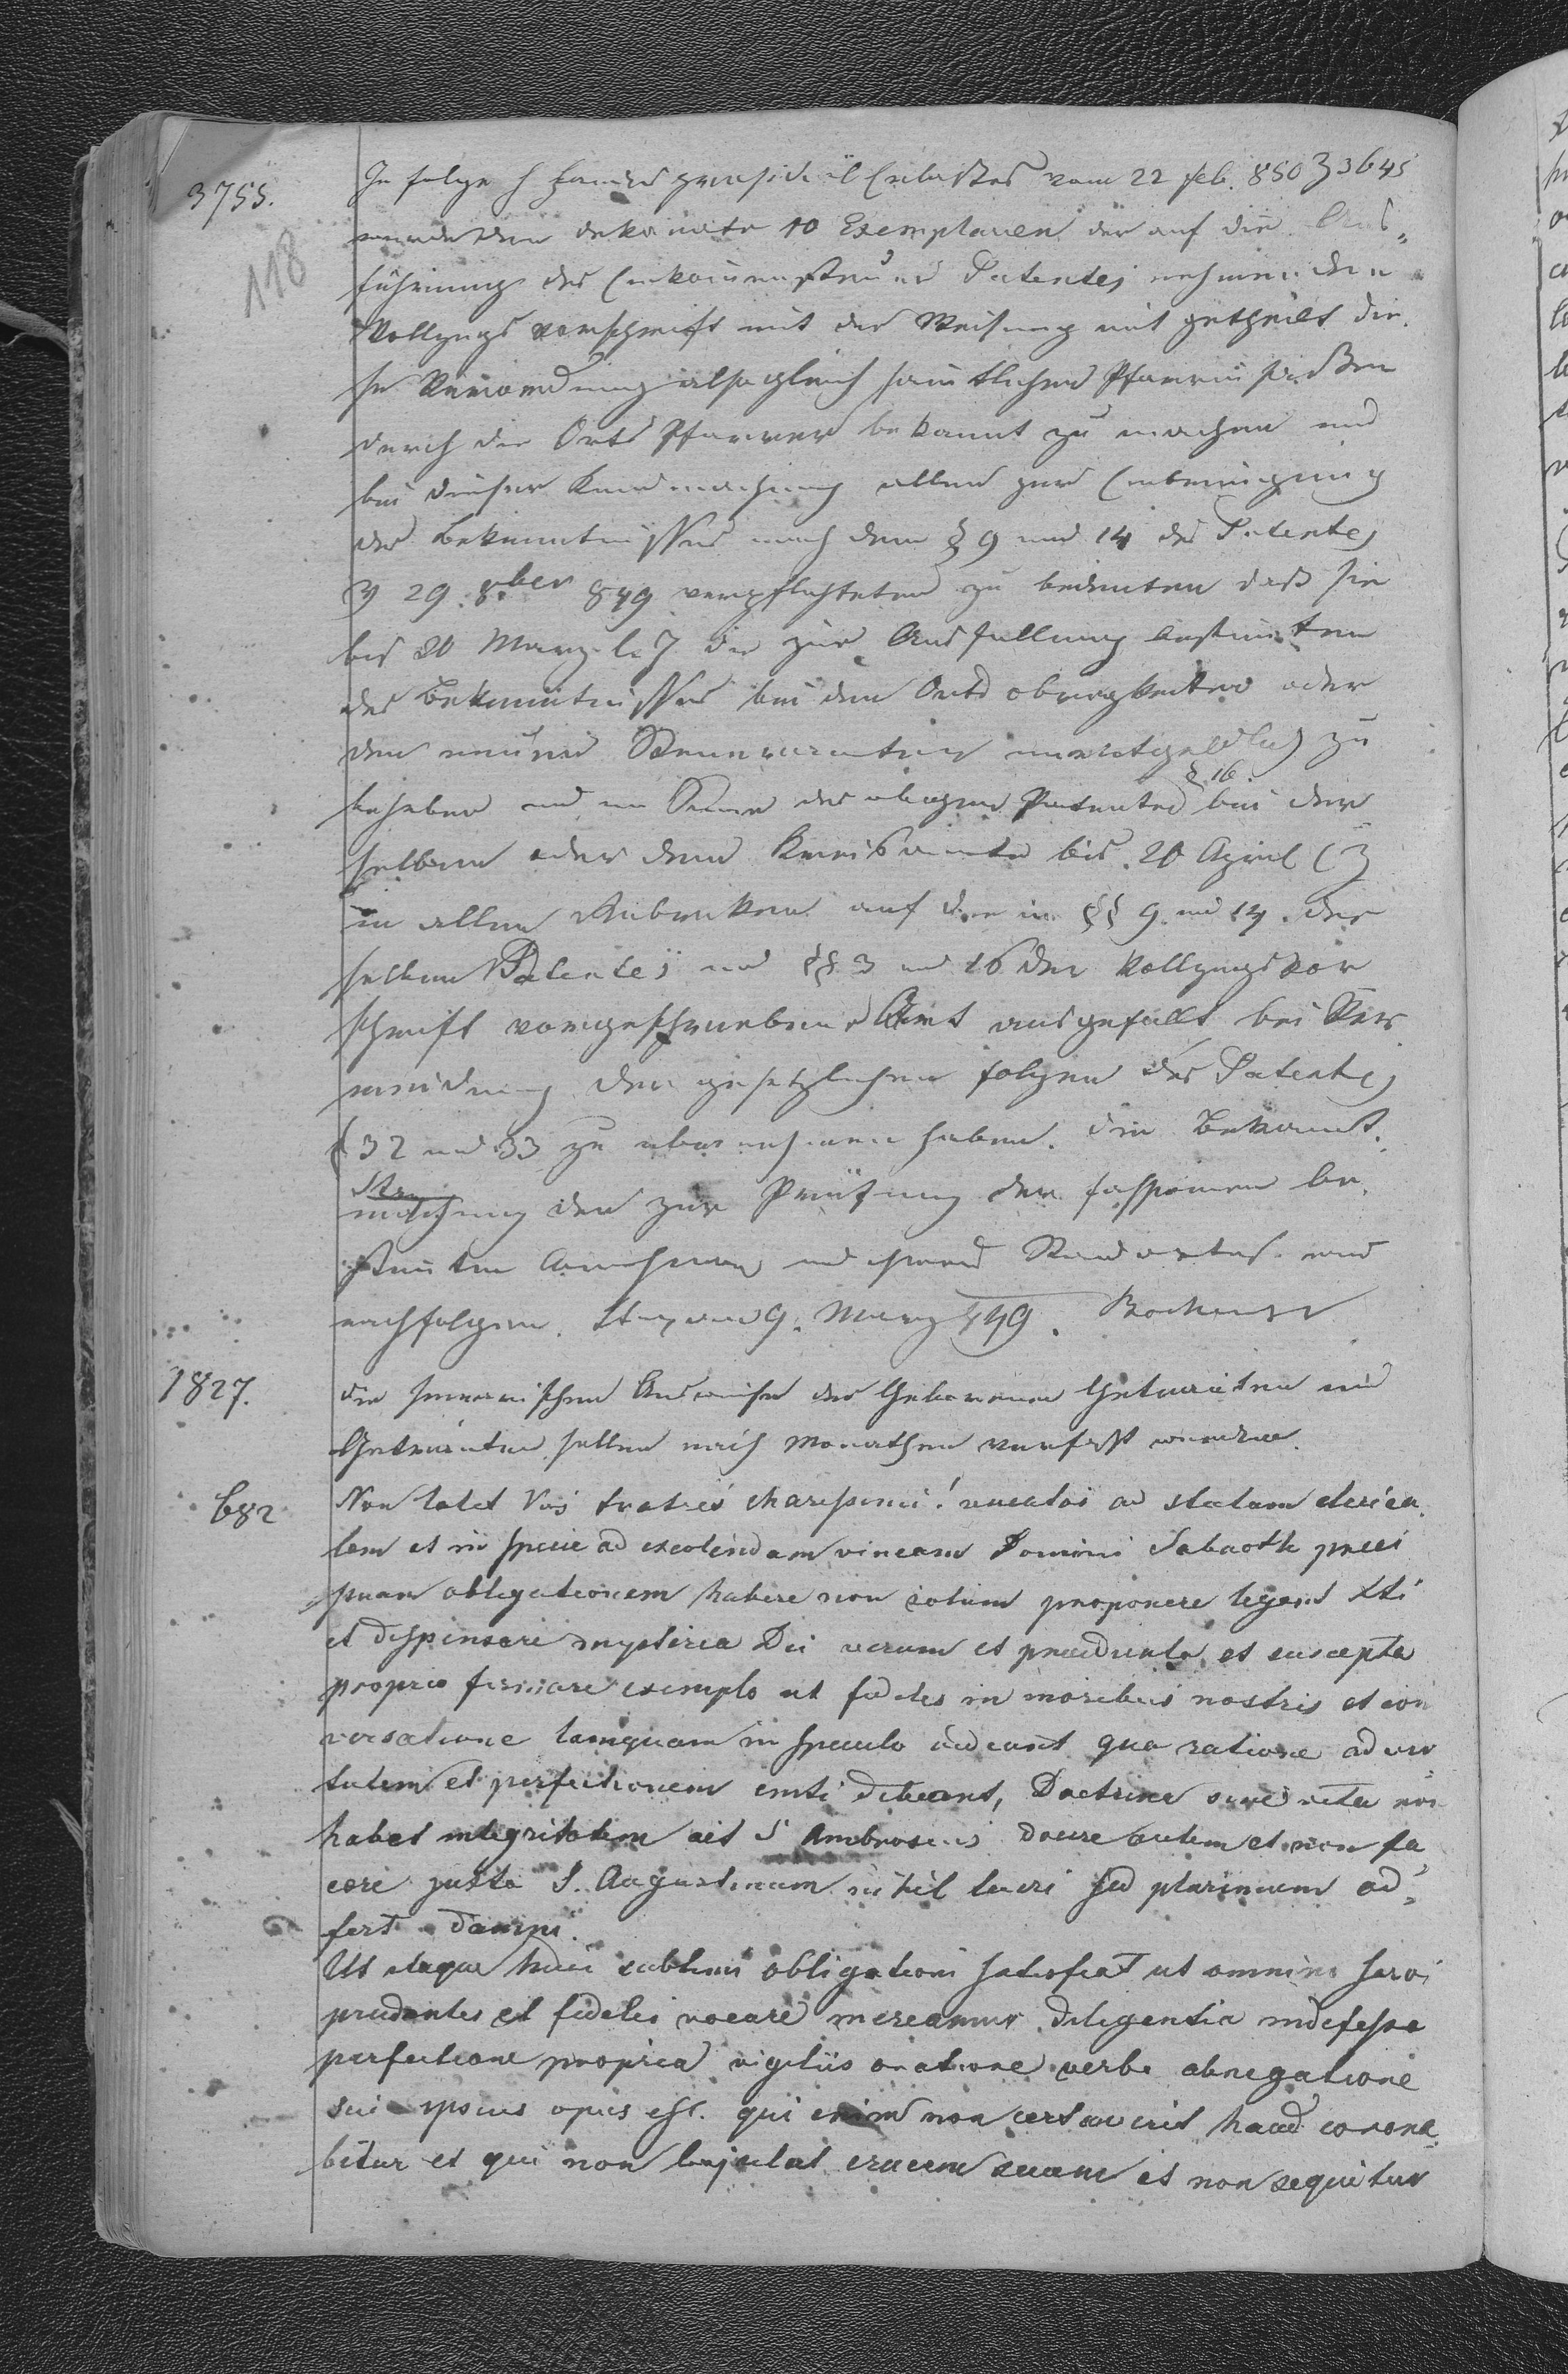 3755.
118
In folge h Landes praesidial Erlaßes vom 22 feb. 850 Z 3645
wurde dem dekanate 10 Exemplaren der auf die Aus„
führung des Einkommensteuer Patentes nehmenden
Vollzugs vorschrift mit der Weisung mit getheilt die
se Verordnung alsogleich sämtlichen Pfarrinsaßen
durch die Orts Pfarrer bekannt zu machen und
bei dieser Kundmachung allen zur Einbringung
des Bekenntnisses nach dem § 9 und 14 des Patentes
29 8ber 849 verpflichteten zu bedeuten daß sie
bis 20 März l. J die zur Ausfüllung bestimten
des Bekenntnisses bei den Orts obrigkeiten oder
den neuen Steuerämtern unentgeldlich zu
§ 16.
beheben und im Sinne des obigen Patentes bei der
selben oder dem Kreisamte bis 20 April
in allen Rubriken auf die in §§ 9 und 14 des
selben Patentes und §§ 3 und 16 der Vollzugs vor
schrift vorgeschriebene Art ausgefüllt bei Ver
meidung der gesetzlichen folgen des Patentes
§ 32 und 33 zu übernehmen haben. Die Bekannt
machung der zur Prüfung der fassionen be
stimten und ihres Standortes wird
nachfolgen. 9. März 849. Bochenski
1827.
die summarischen Ausweise der Geborenen Getrauten und
Getrauten sollen nach Monathen verfaßt werden.
682
Non latet Vos fratres charissimi! vocatos ad statum clerica
lem et in specie ad excolendam vineam Domini Sabaoth preci
puam obligationem habere non solum proponere legem Xti
et dispensare mysteria Dei verum et praedicata et suscepta
proprio firmare exemplo ut fideles in moribus nostris et con
versatione tamquam in speculo videant qua ratione ad vir
tutem et perfectionem eniti debeant, Doctrina sine vita non
habet integritatem ait S Ambrosius docere autem et non fa
cere juxta S. Augustinum nihil lucri sed plurimum ad„
fert damni.
Ut itaque huic sublimi obligationi satisfiat ut omnino servi
prudentes et fideles vocare mereamur diligentia indefessa
perfectione propria vigiliis oratione verbo abnegatione
sui ipsius opus est. qui enim non certaverit haud corona
bitur et qui non bajulat crucem suam et non sequitur